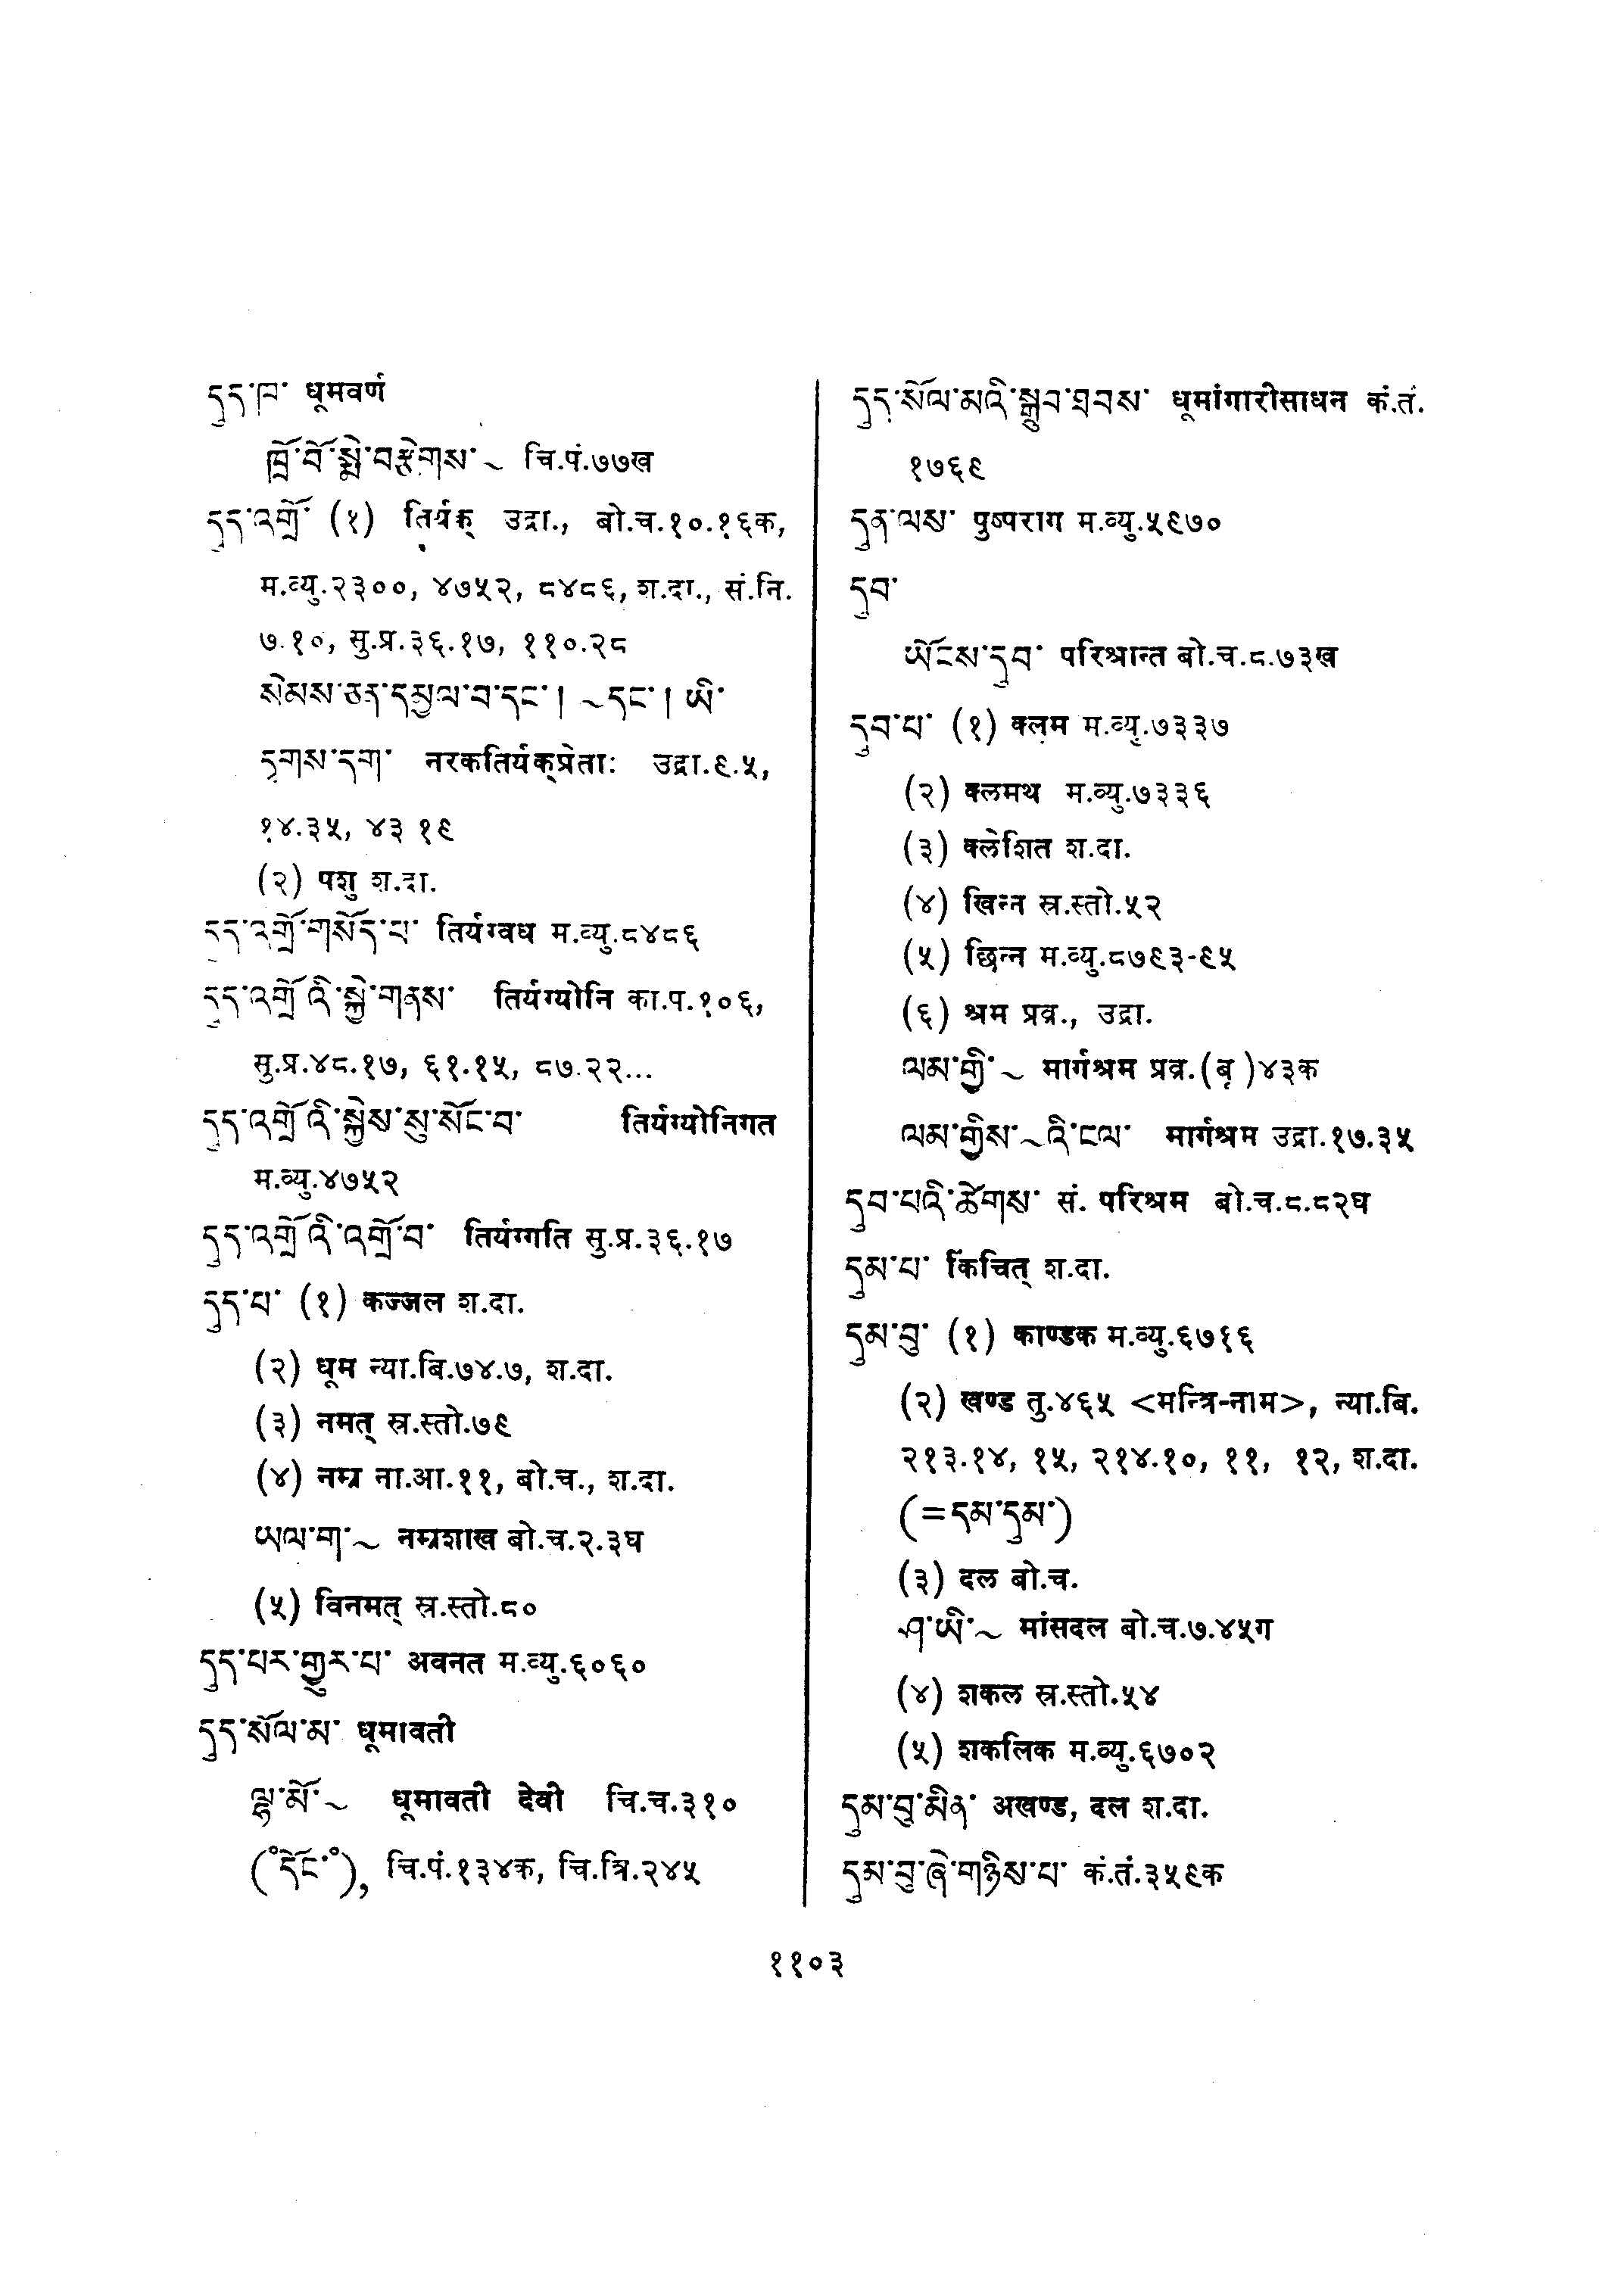 དུད་ཁ་ धूमवर्ण
ཁྲོ་བོ་སྨེ་བརྩེགས་ ~ चि.पं.७७ख
དུད་འགྲོ་ (१) तिर्यक् उद्रा., बो.च.१०.१६क,
म.व्यु.२३००, ४७५२, ८४८६, श.दा., सं.नि.
७.१०, सु.प्र.३६.१७, ११०.२८
སེམས་ཅན་དམྱལ་བ་དང་། ~དང་། ཡི་
དྭགས་དག་ नरकतिर्यक्प्रेताः उद्रा.९.५,
१४.३५, ४३ १९
(२) पशु श.दा.
དུད་འགྲོ་གསོད་པ་ तिर्यग्वध म.व्यु.८४८६
དུད་འགྲོའི་སྐྱེ་གནས་ तिर्यग्योनि का.प.१०६,
सु.प्र.४८.१७, ६१.१५, ८७.२२...
དུད་འགྲོའི་སྐྱེས་སུ་སོང་བ་ तिर्यग्योनिगत
म.व्यु.४७५२
དུད་འགྲོའི་འགྲོ་བ་ तिर्यग्गति सु.प्र.३६.१७
དུད་པ་ (१) कज्जल श.दा.
(२) धूम न्या.बि.७४.७, श.दा.
(३) नमत् स्र.स्तो.७९
(४) नम्र ना.आ.११, बो.च., श.दा.
ཡལ་ག་ ~ नम्रशाख बो.च.२.३घ
(५) विनमत् स्र.स्तो.८०
དུད་པར་གྱུར་པ་ अवनत म.व्यु.६०६०
དུད་སོལ་མ་ धूमावती
ལྷ་མོ་ ~ धूमावती देवी चि.च.३१०
(°དོང་°), चि.पं.१३४क, चि.त्रि.२४५
དུད་སོལ་མའི་སྒྲུབ་ཐབས་ धूमांगारीसाधन कं.तं.
१७६९
དུན་ལས་ पुष्पराग म.व्यु.५९७०
དུབ་
ཡོངས་དུབ་ परिश्रान्त बो.च.८.७३ख
དུབ་པ་ (१) क्लम म.व्यु.७३३७
(२) क्लमथ म.व्यु.७३३६
(३) क्लेशित श.दा.
(४) खिन्न स्र.स्तो.५२
(५) छिन्न म.व्यु.८७९३-९५
(६) श्रम प्रव्र., उद्रा.
ལམ་གྱི་ ~ मार्गश्रम प्रव्र.(बृ)४३क
ལམ་གྱིས་~འི་ངལ་ मार्गश्रम उद्रा.१७.३५
དུབ་པའི་ཚེགས་ सं. परिश्रम बो.च.८.८२घ
དུམ་པ་ किंचित् श.दा.
དུམ་བུ་ (१) काण्डक म.व्यु.६७१६
(२) खण्ड तु.४६५ <मन्त्रि-नाम>, न्या.बि.
२१३.१४, १५, २१४.१०, ११, १२, श.दा.
(=དམ་དུམ་)
(३) दल बो.च.
ཤ་ཡི་ ~ मांसदल बो.च.७.४५ग
(४) शकल स्र.स्तो.५४
(५) शकलिक म.व्यु.६७०२
དུམ་བུ་མིན་ अखण्ड, दल श.दा.
དུམ་བུ་ཞེ་གཉིས་པ་ कं.तं.३५९क
११०३